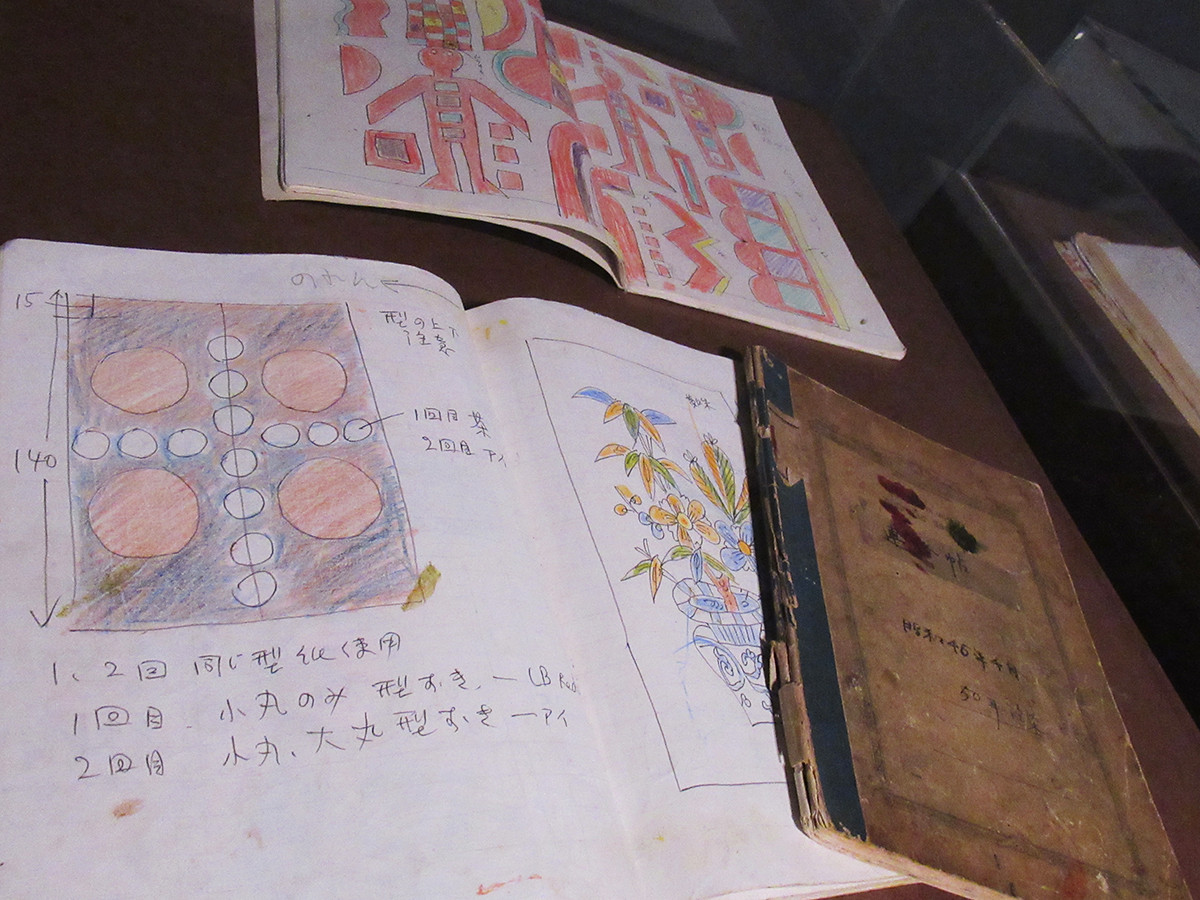 のれん
15
型の上下
注意
1回目 茶
2回目 アイ
140
1、2回 同じ型 使用
1回目 小丸のみ 型おき ー
2回目 小丸、大丸型おきーアイ
帖
昭和46年4月
50年